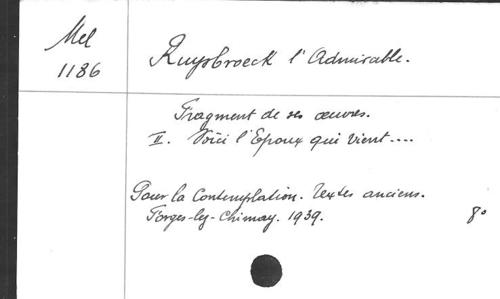 Mel
1186
Ruysbroeck l'Admirable.
Fragment de ses œuvres.
II. Voici l'Epoux qui vient....
Pour la Contemplation. Textes anciens.
Forges-lez-Chimay. 1939. 8°